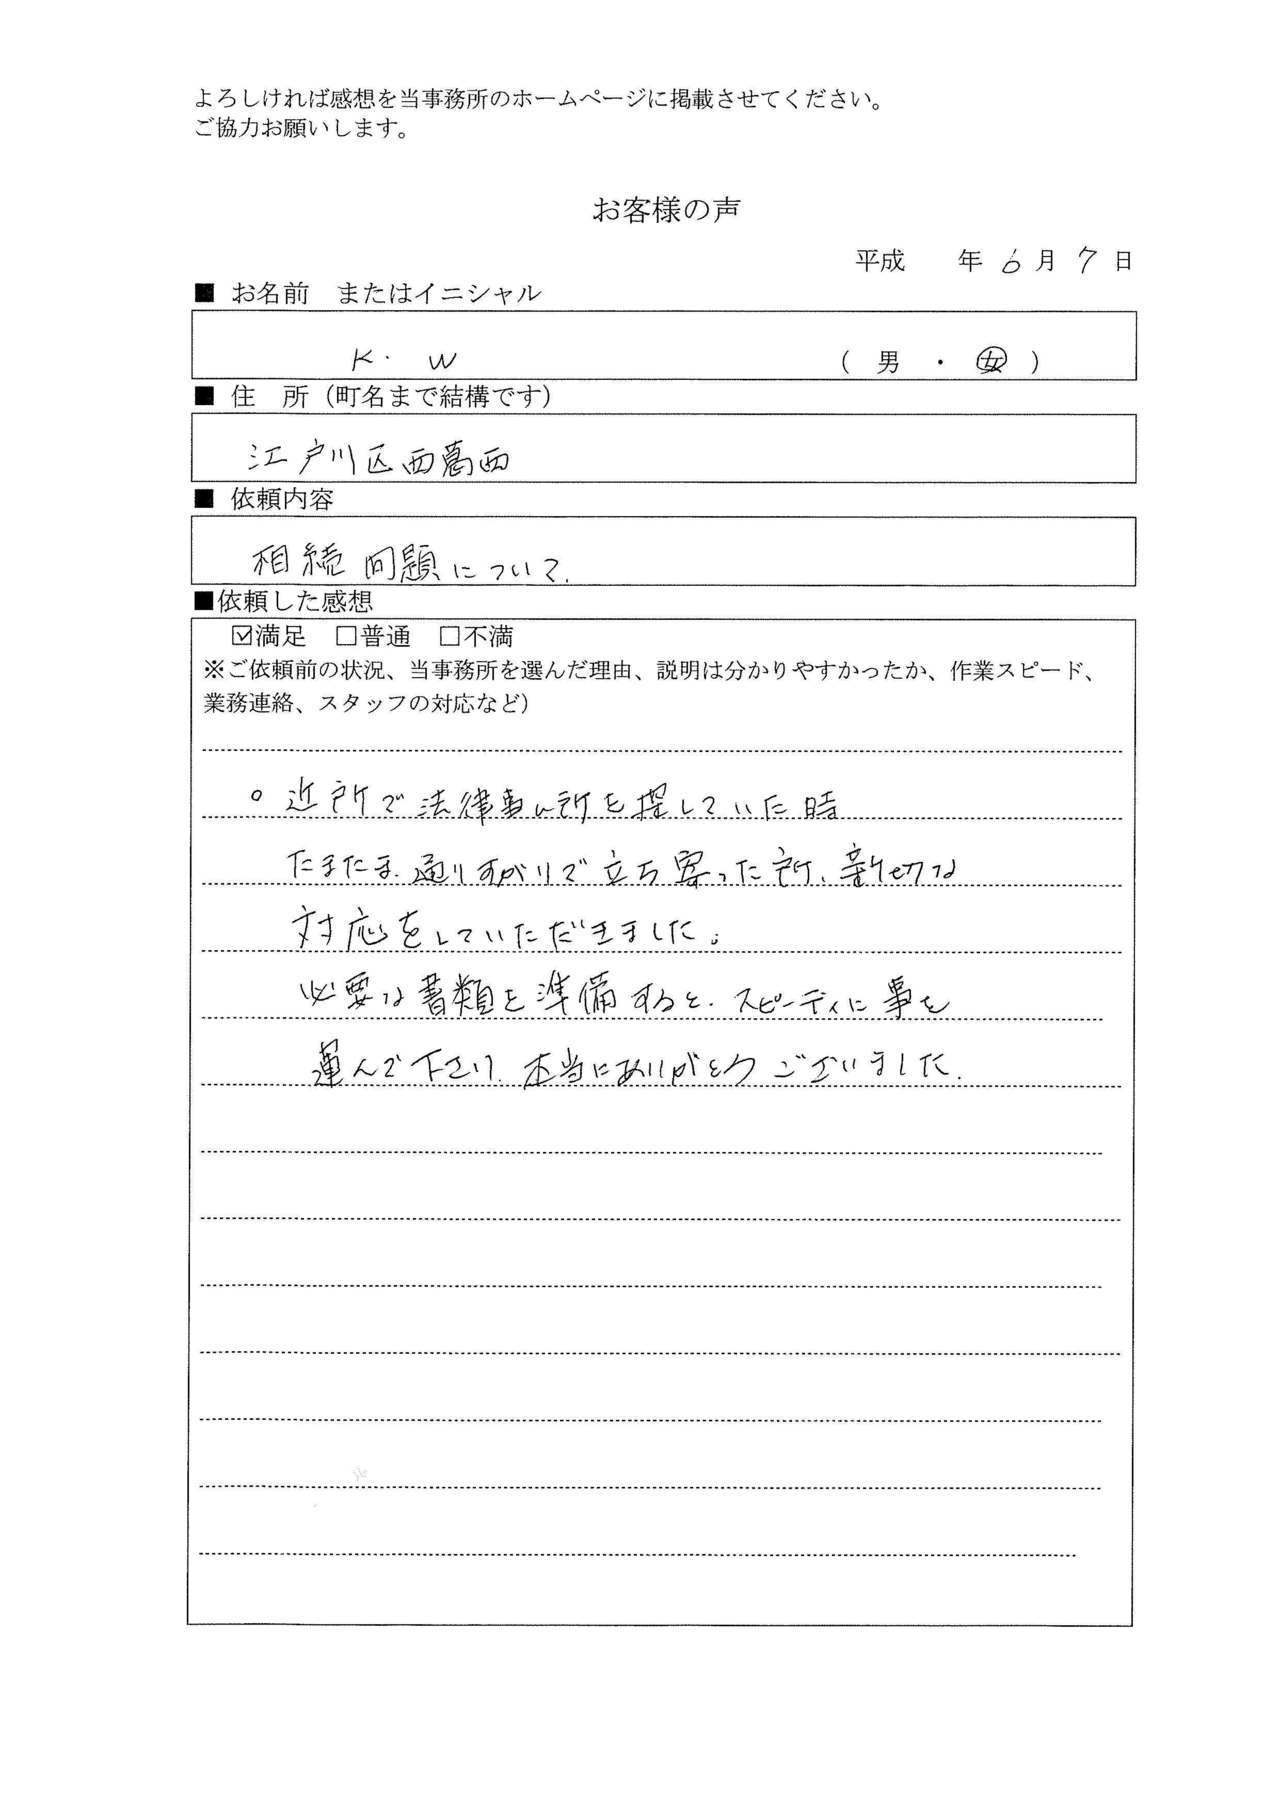 よろしければ感想を当事務所のホームページに掲載させてください。
ご協力お願いします。
お客様の声
平成　　年 6 月 7 日
■ お名前　またはイニシャル
K. W （ 男 ・ 女 ）
■ 住　所（町名まで結構です）
江戸川区西葛西
■ 依頼内容
相続問題について.
■依頼した感想
☑満足　□普通　□不満
※ご依頼前の状況、当事務所を選んだ理由、説明は分かりやすかったか、作業スピード、
業務連絡、スタッフの対応など）
○ 近所で法律事ム所を探していた時
たまたま、通りすがりで立ち寄った所、親切な
対応をしていただきました。
必要な書類を準備すると、スピーディに事を
運んで下さり、本当にありがとうございました.